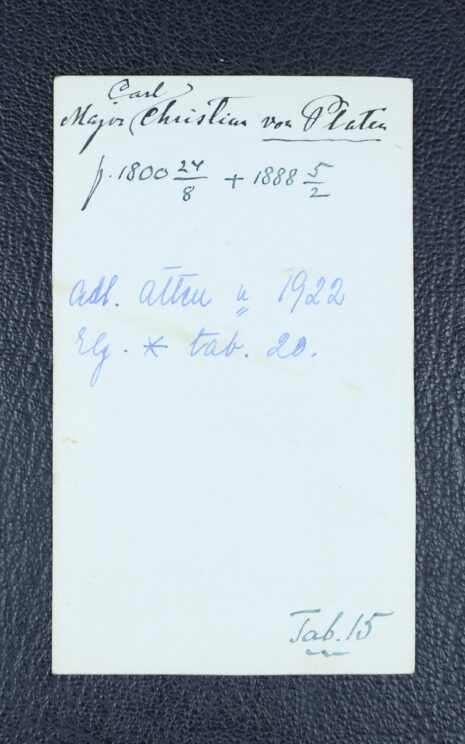 Major (Carl) Christian von Platen
f. 1800 24/8 + 1888 5/2
Adl. ätten n 1922
Elg. * tab. 20.
Tab. 15